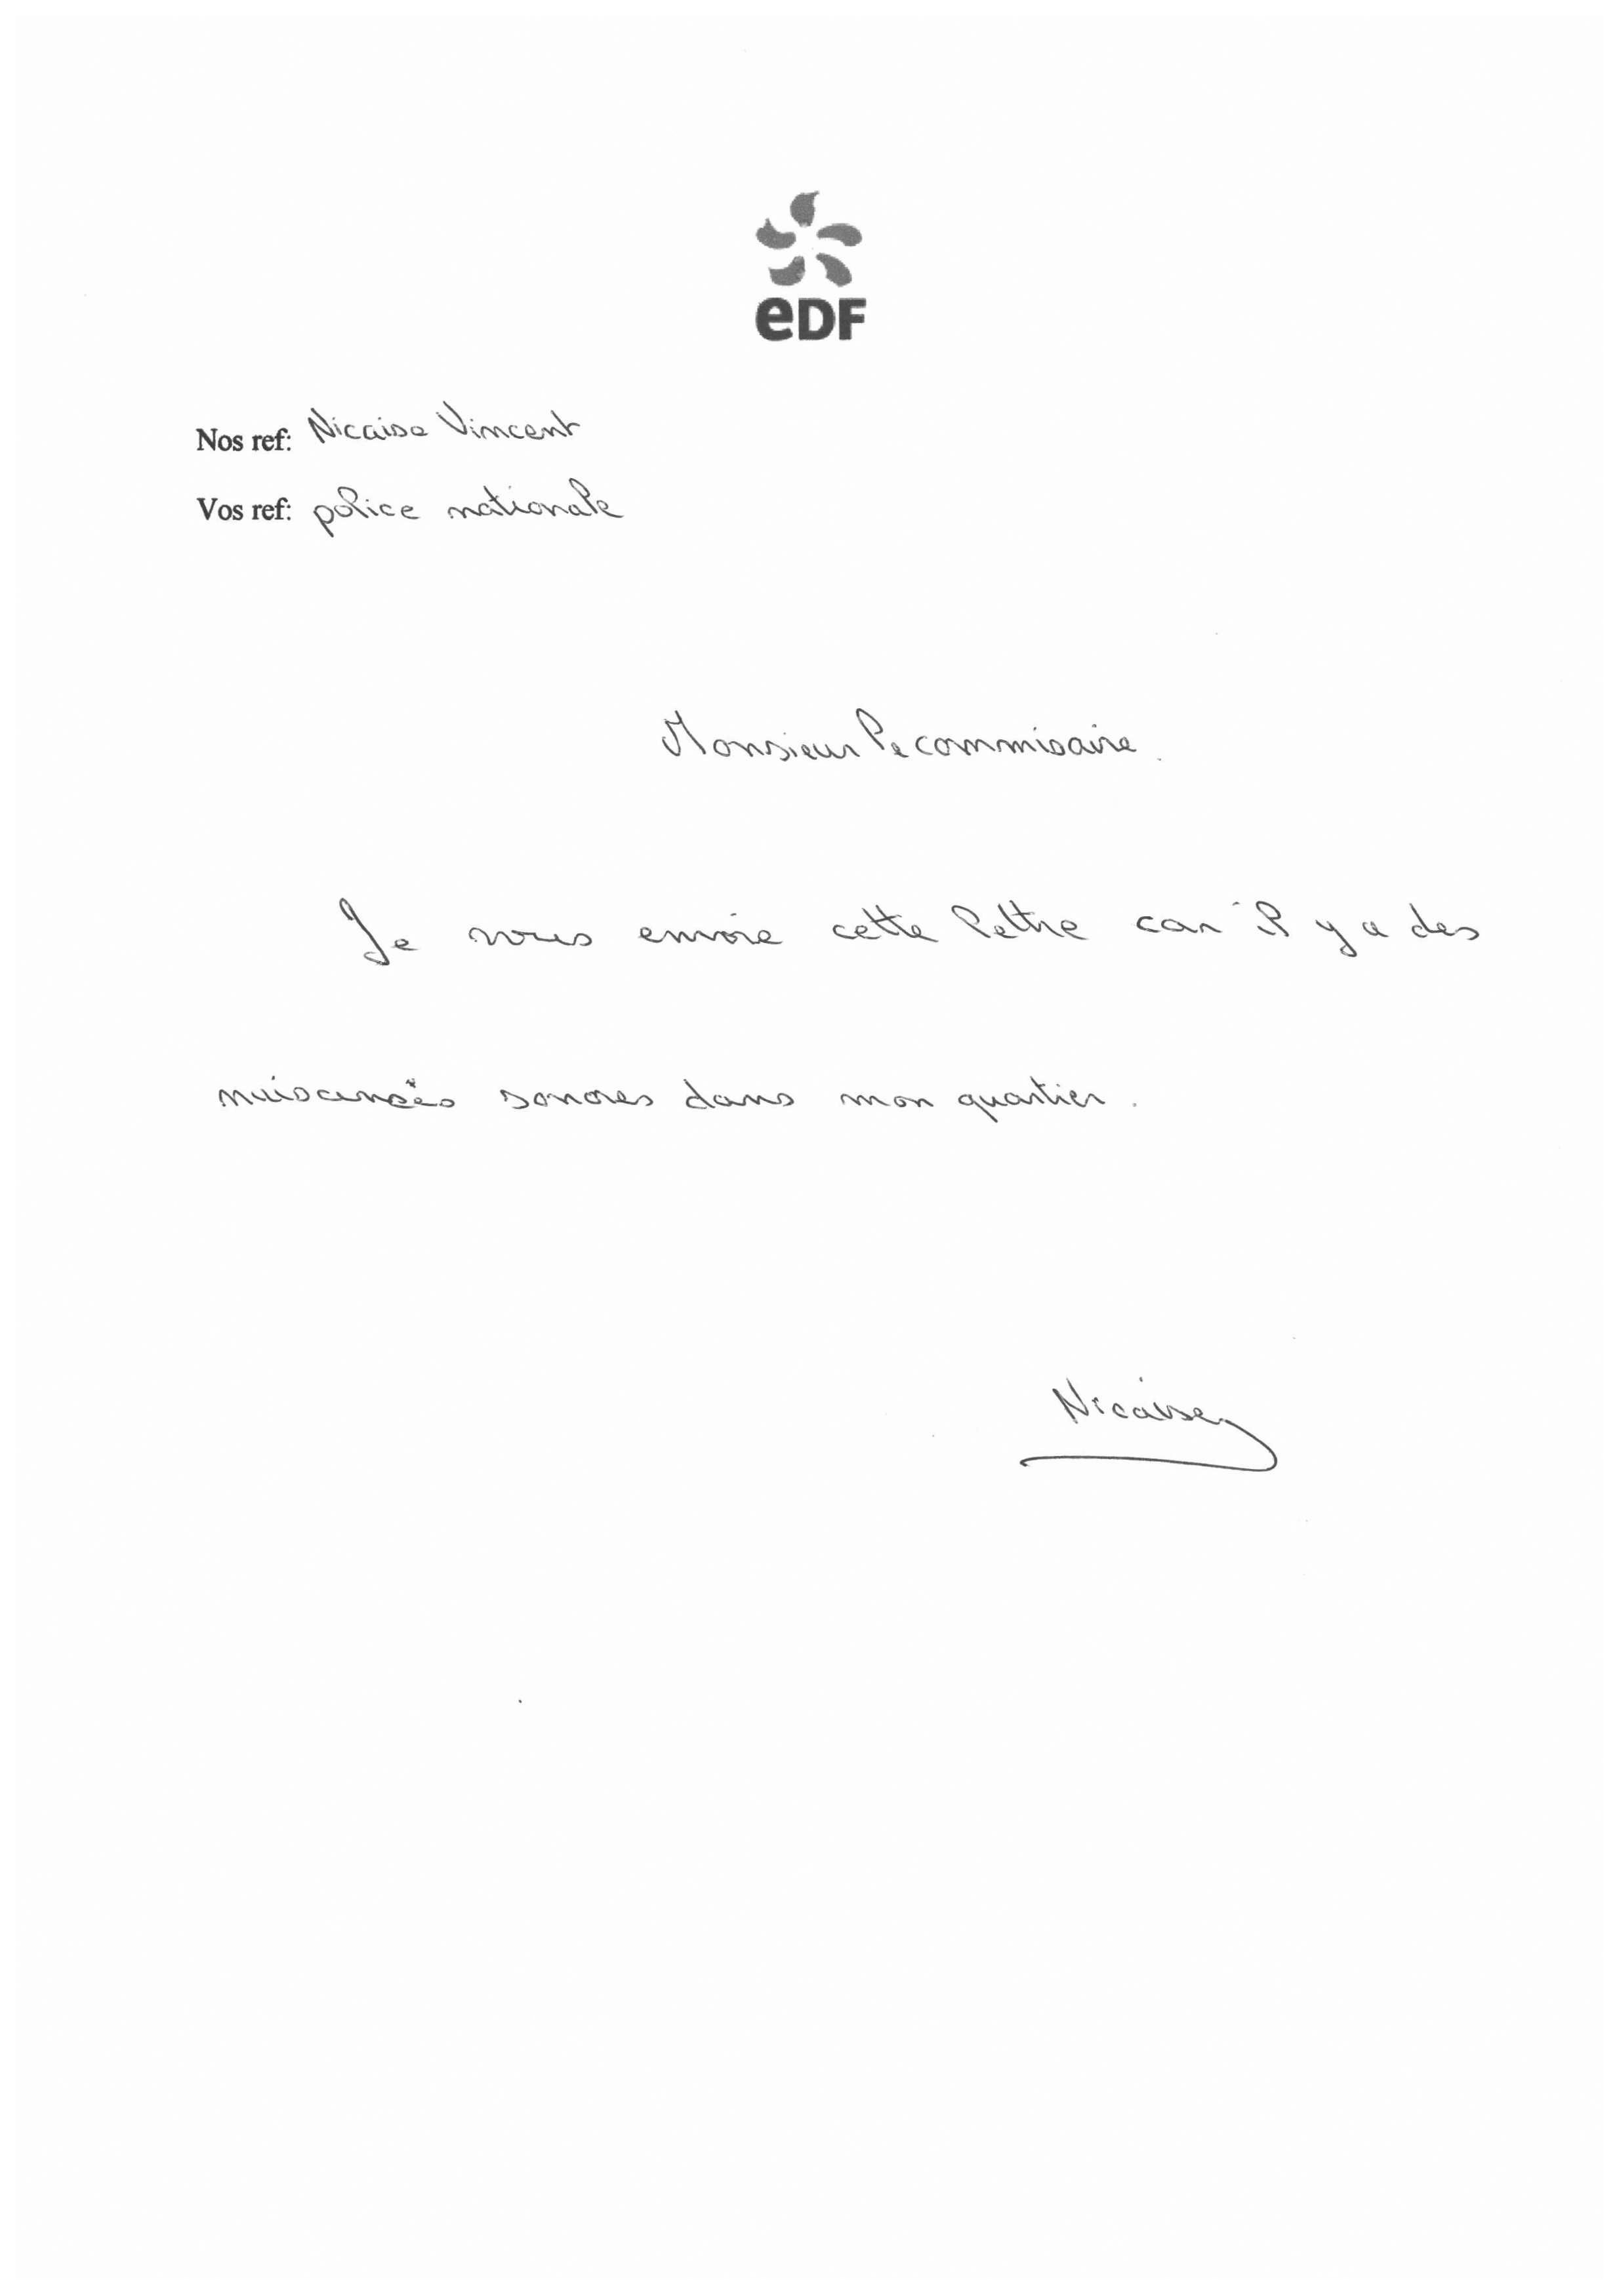 eDF
Nos ref: Nicaise Vincent
Vos ref: police nationale
Monsieur le commisaire.
Je vous envoie cette lettre car il y a des
nuisances sonores dans mon quartier.
Nicaise